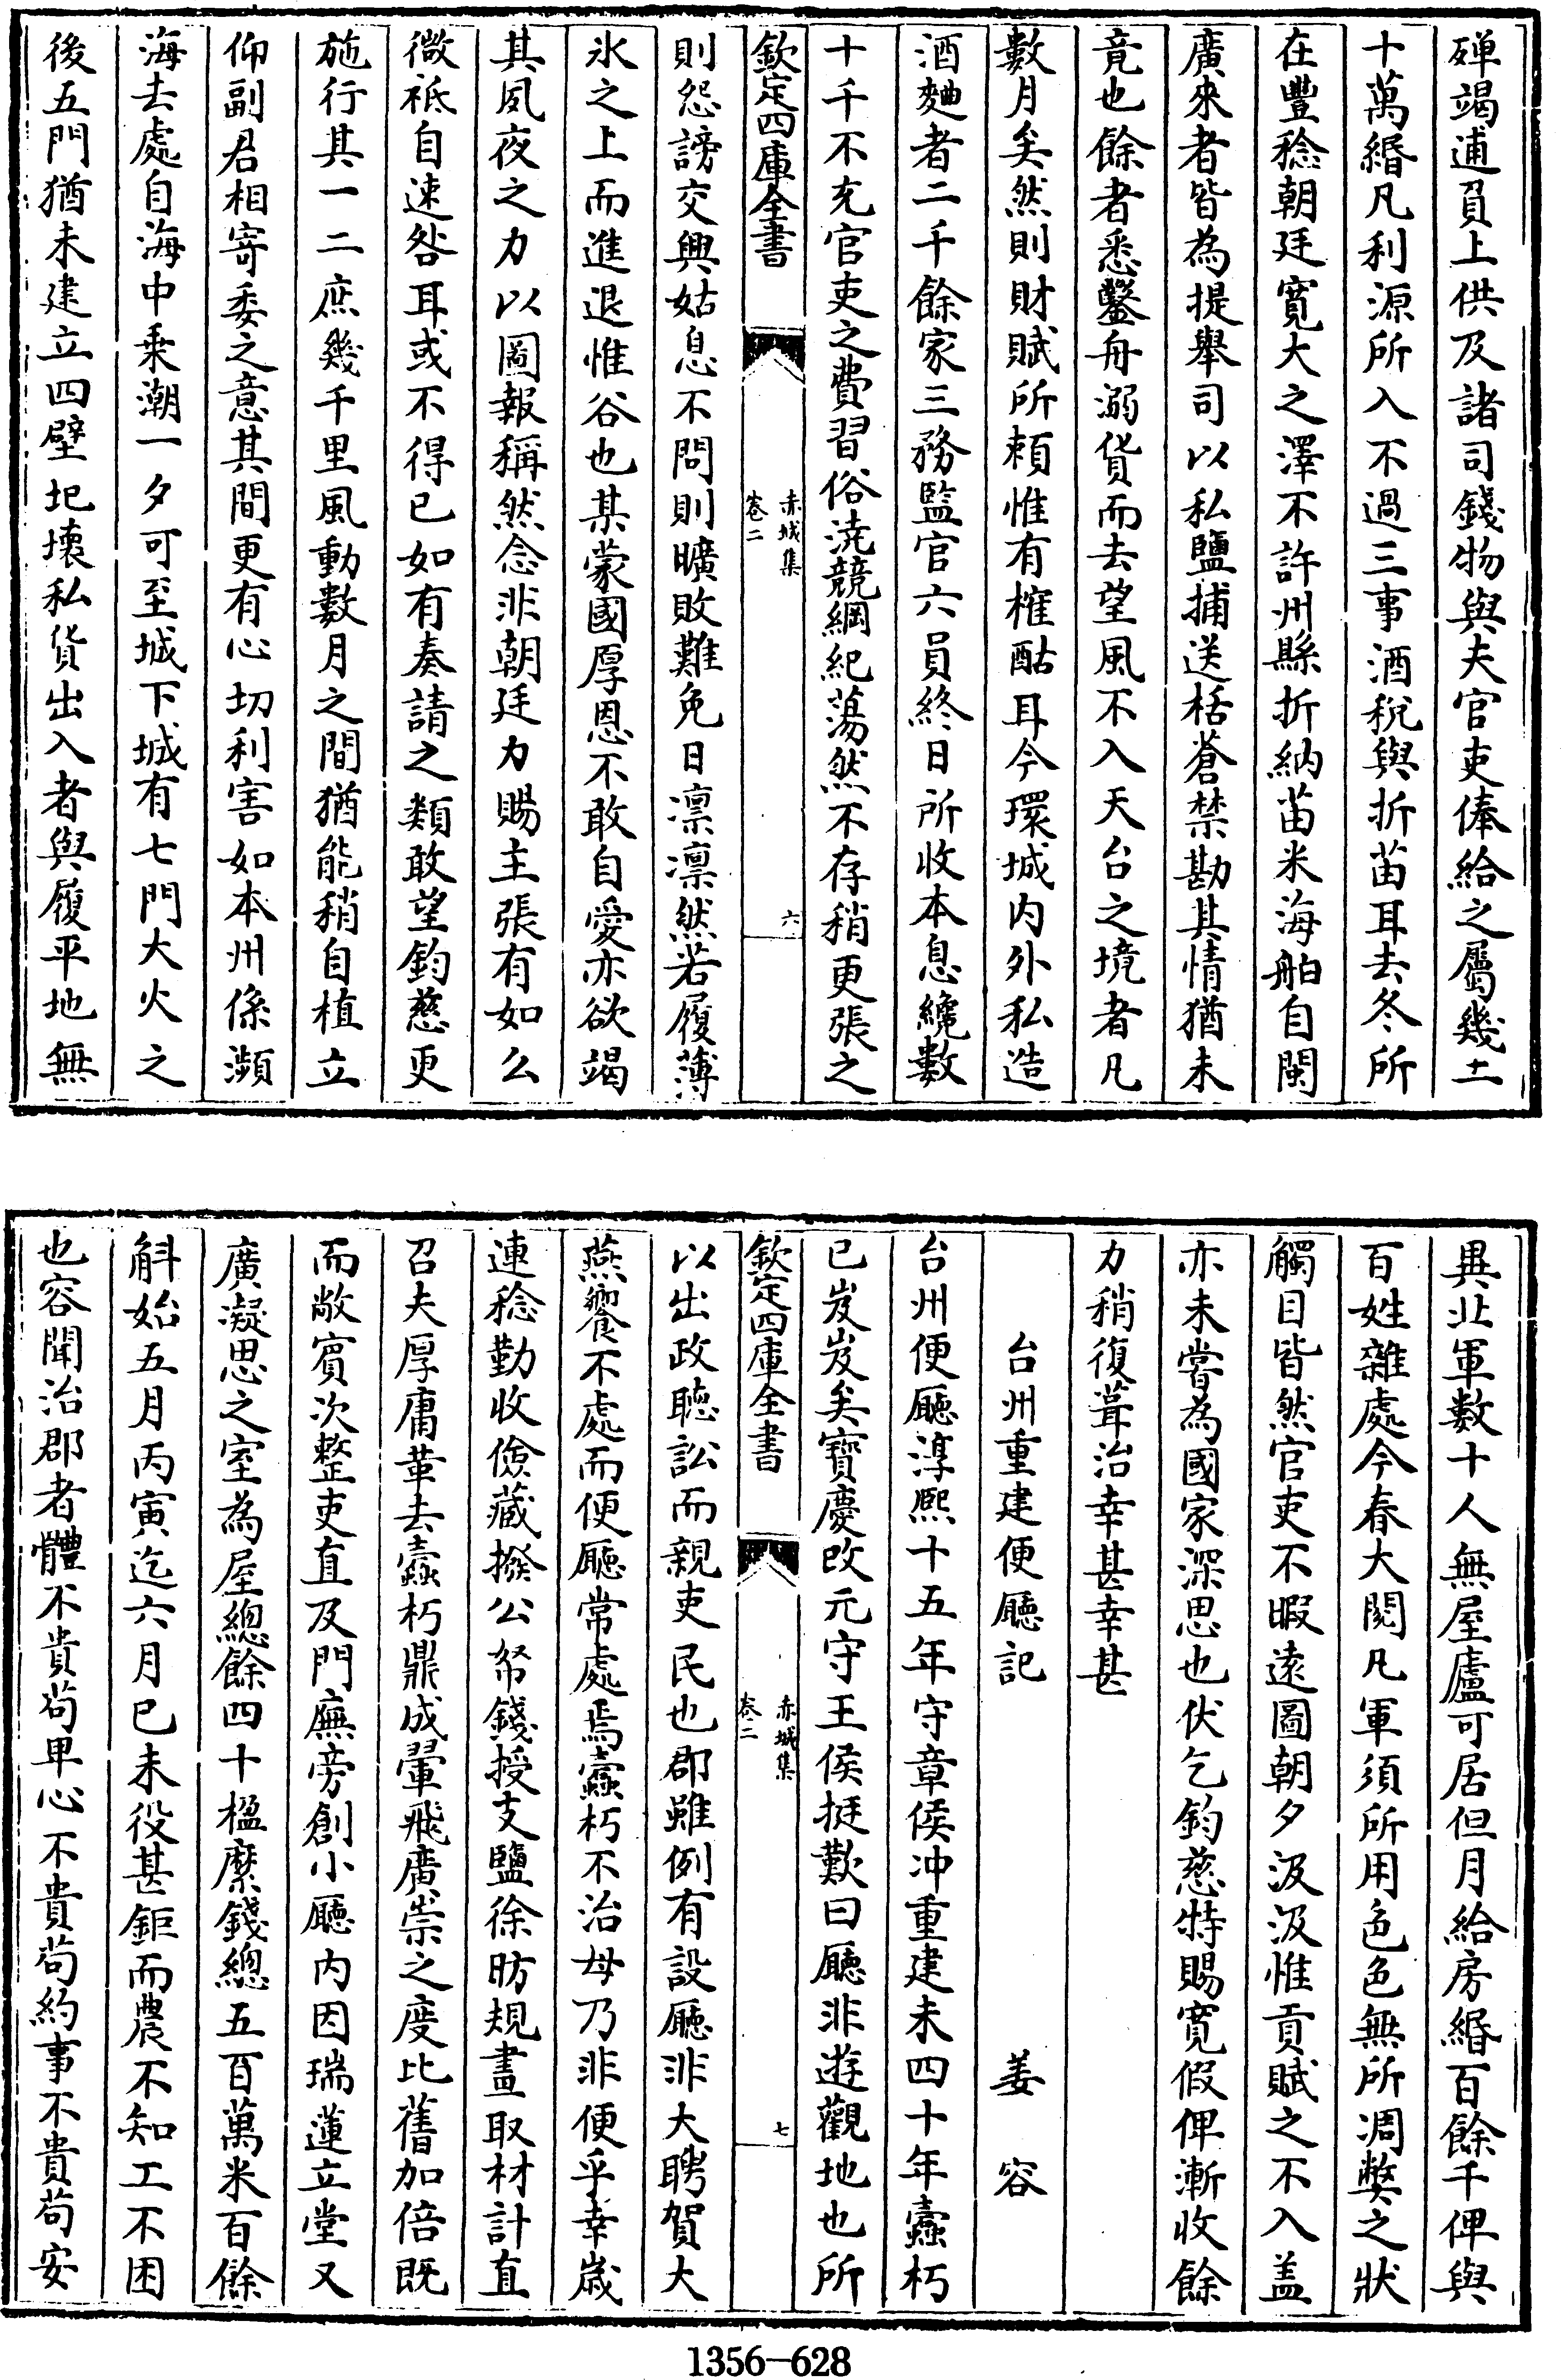 殫竭逋負上供及諸司錢物與夫官吏俸給之屬幾二
十萬緡凡利源所入不過三事酒稅與折苗耳去冬所
在豐稔朝廷寛大之澤不許州縣折納苗米海舶自閩
廣來者皆為提舉司以私鹽捕送栝蒼禁勘其情猶未
竟也餘者悉鑿舟溺貨而去望風不入天台之境者凡
數月矣然則財賦所頼惟有榷酤耳今環城内外私造
酒麯者二千餘家三務監官六員終日所收本息纔數
十千不充官吏之費習俗澆競綱紀蕩然不存稍更張之
欽定四庫全書
赤城集
卷二
六
則怨謗交興姑息不問則曠敗難免日凛凛然若履薄
氷之上而進退惟谷也某蒙國厚恩不敢自愛亦欲竭
其夙夜之力以圖報稱然念非朝廷力賜主張有如么
微祗自速咎耳或不得已如有奏請之類敢望鈞慈更
施行其一二庶幾千里風動數月之間猶能稍自植立
仰副君相寄委之意其間更有心切利害如本州係瀕
海去處自海中乗潮一夕可至城下城有七門大火之
後五門猶未建立四壁圮壊私貨出入者與履平地無
異北軍數十人無屋廬可居但月給房緡百餘千俾與
百姓雜處今春大閱凡軍須所用色色無所凋獘之狀
觸目皆然官吏不暇逺圖朝夕汲汲惟貢賦之不入盖
亦未嘗為國家深思也伏乞鈞慈特賜寛假俾漸收餘
力稍復葺治幸甚幸甚
台州重建便廳記
姜容
台州便廳淳熙十五年守章侯冲重建未四十年蠹朽
已岌岌矣寶慶改元守王侯挺歎曰廳非遊觀地也所
欽定四庫全書
赤城集
卷二
七
以出政聽訟而親吏民也郡雖例有設廳非大聘賀大
燕饗不處而便廳常處焉蠹朽不治母乃非便乎幸歳
連稔勤收儉藏撥公帑錢授支鹽徐昉規畫取材計直
召夫厚庸革去蠹朽鼎成翬飛廣崇之度比舊加倍既
而敞賔次整吏直及門廡旁創小廳内因瑞蓮立堂又
廣凝思之室為屋總餘四十楹縻錢總五百萬米百餘
斛始五月丙寅迄六月已未役甚鉅而農不知工不困
也容聞治郡者體不貴茍卑心不貴茍約事不貴茍安
1356-628